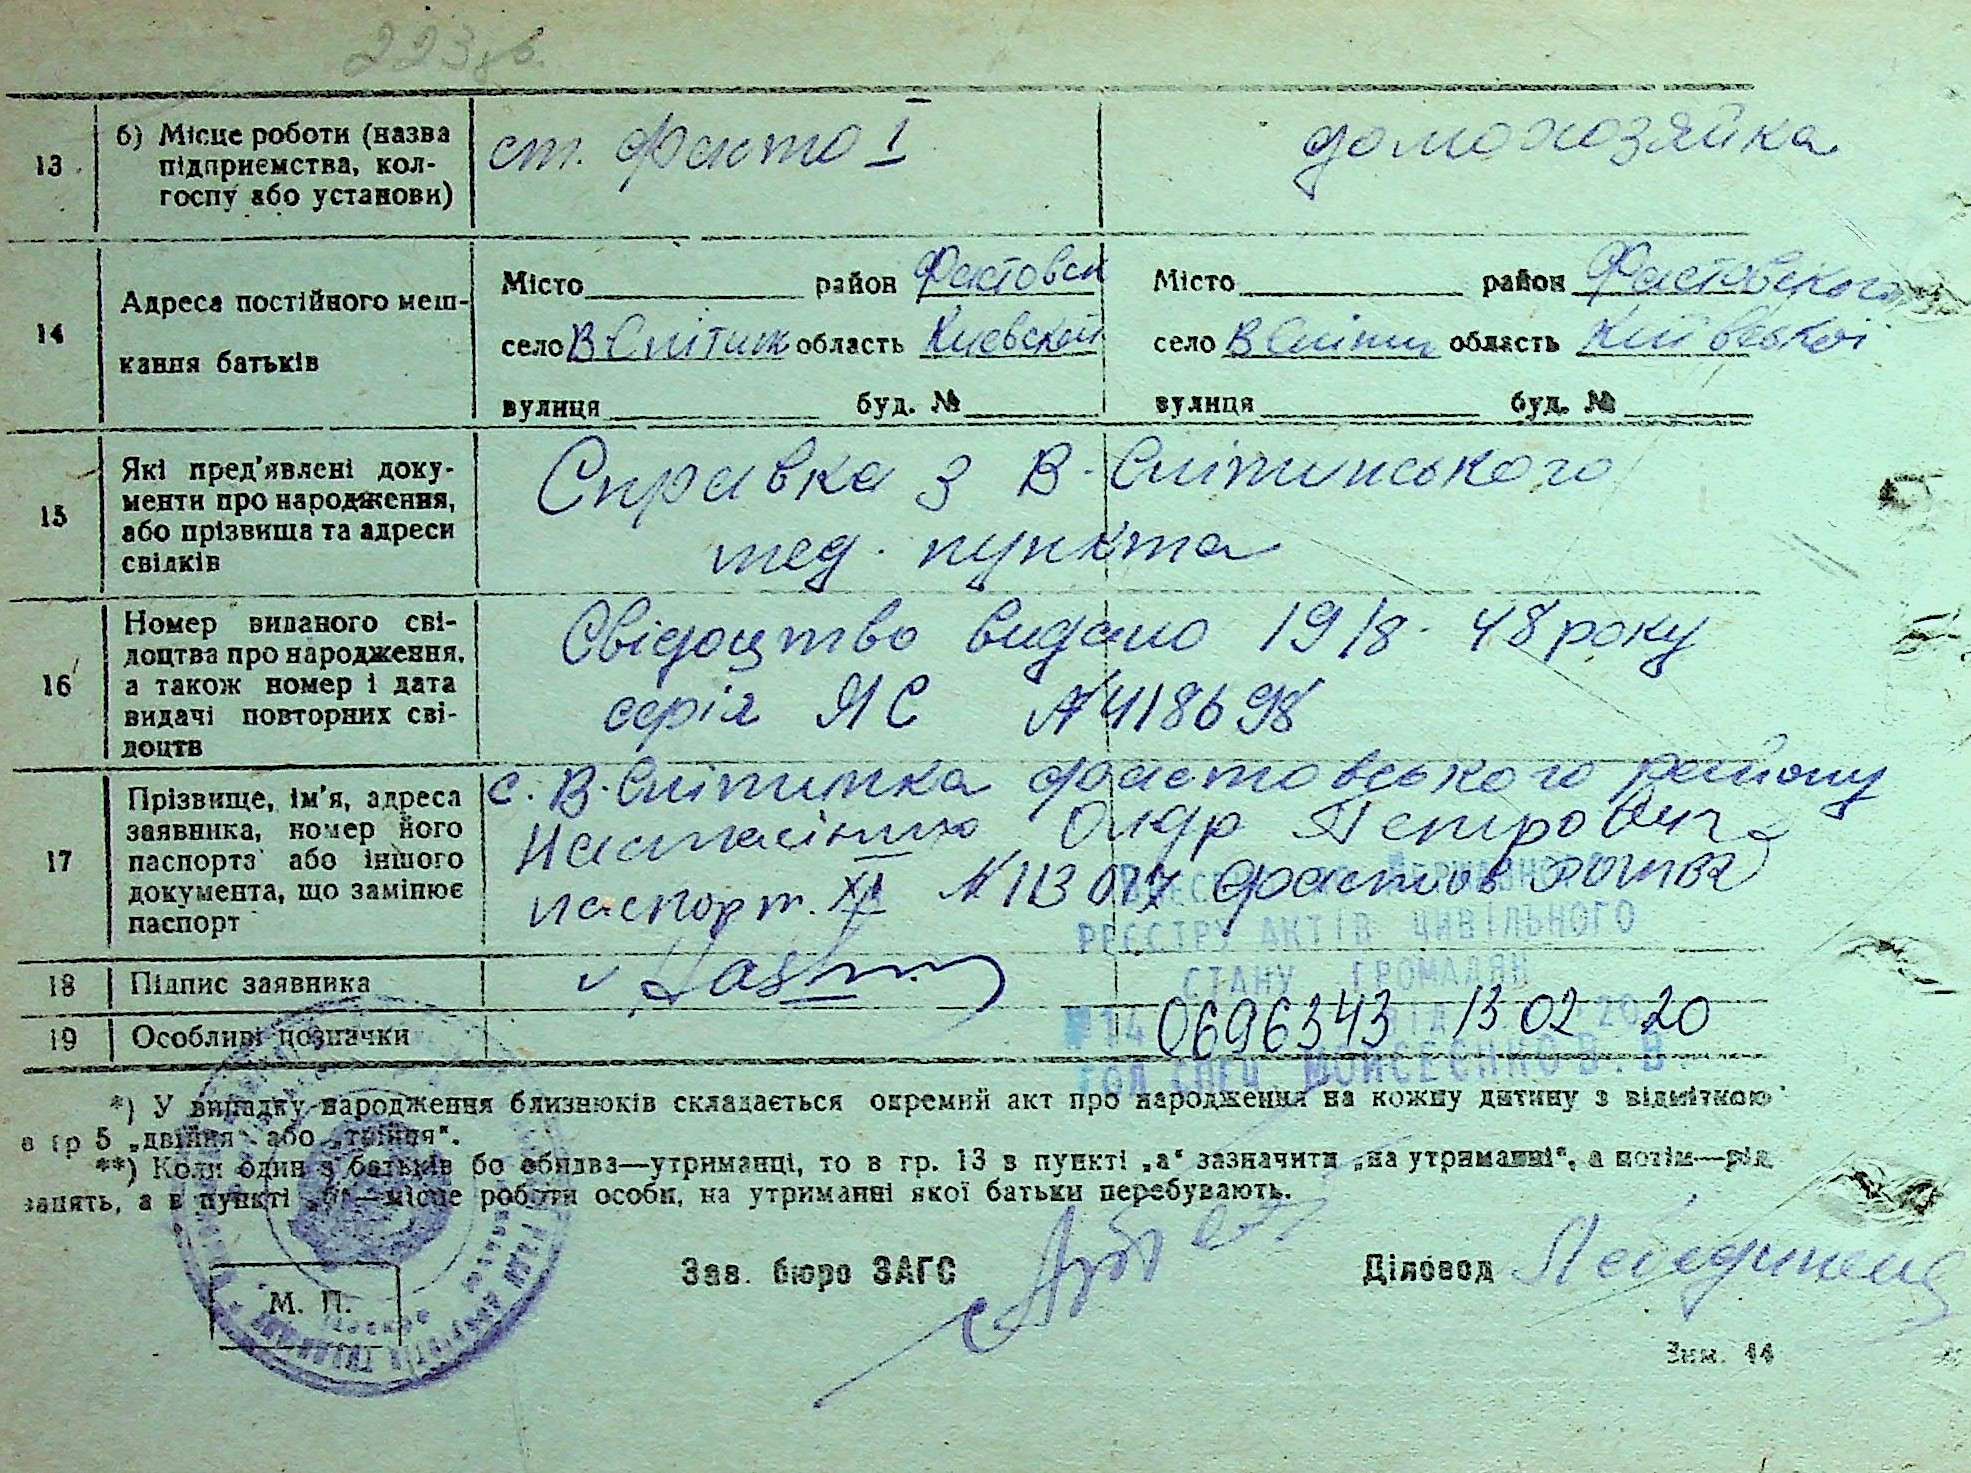 223 зв.
13
б) Місце роботи (назва підприємства, колгоспу або установи)
ст. Фастов I
домохозяйка
14
Адреса постійного мешкання батьків
Місто район Фастовск
село В-Снітинк область Киевской
вулиця буд. №
Місто район Фастовского
село В Снітин область Київської
вулиця буд. №
15
Які пред'явлені документи про народження, або прізвища та адреси свідків
Справка з В-Снітинського
мед. пункта
16
Номер виданого свідоцтва про народження, а також номер і дата видачі повторних свідоцтв
Свідоцтво видано 19/8-48 року
серія ЯС №418698
17
Прізвище, ім'я, адреса заявника, номер його паспорта або іншого документа, що замінює паспорт
с. В-Снітинка Фастовського району
Олдр Петрович
паспорт. XI № Фастов
РЕЄСТРУ АКТІВ ЦИВІЛЬНОГО
СТАНУ ГРОМАДЯН
18
Підпис заявника
19
Особливі позначки
№14 0696343 від 13 02 2020
ГОЛ СПЕЦ МОЙСЕЄНКО В. В.
*) У випадку народження близнюків складається окремий акт про народження на кожну дитину з відміткою
в гр 5 „двійня" або „трійня".
**) Коли один з батьків бо обидва—утриманці, то в гр. 13 в пункті „а" зазначити „на утриманні", а потім—рід
занять, а в пункті „б"—місце роботи особи, на утриманні якої батьки перебувають.
Зав. бюро ЗАГС
Діловод
М. П.
Зам. 44